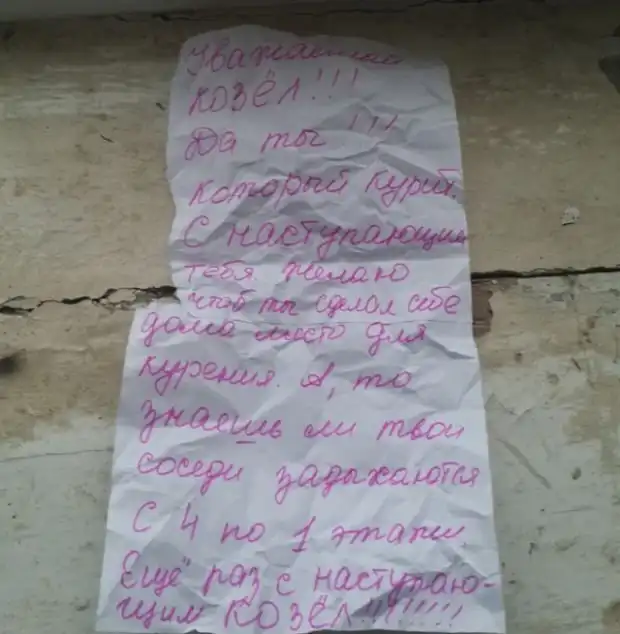 Уважаемый
козёл!!!
Да ты !!!
который курит.
С наступающим
тебя желаю
чтоб ты сделал себе
дома место для
курения. А, то
знаешь ли твои
соседи задыхаются
с 4 по 1 этажи.
Ещё раз с наступаю-
щим козёл!!!!!!!!